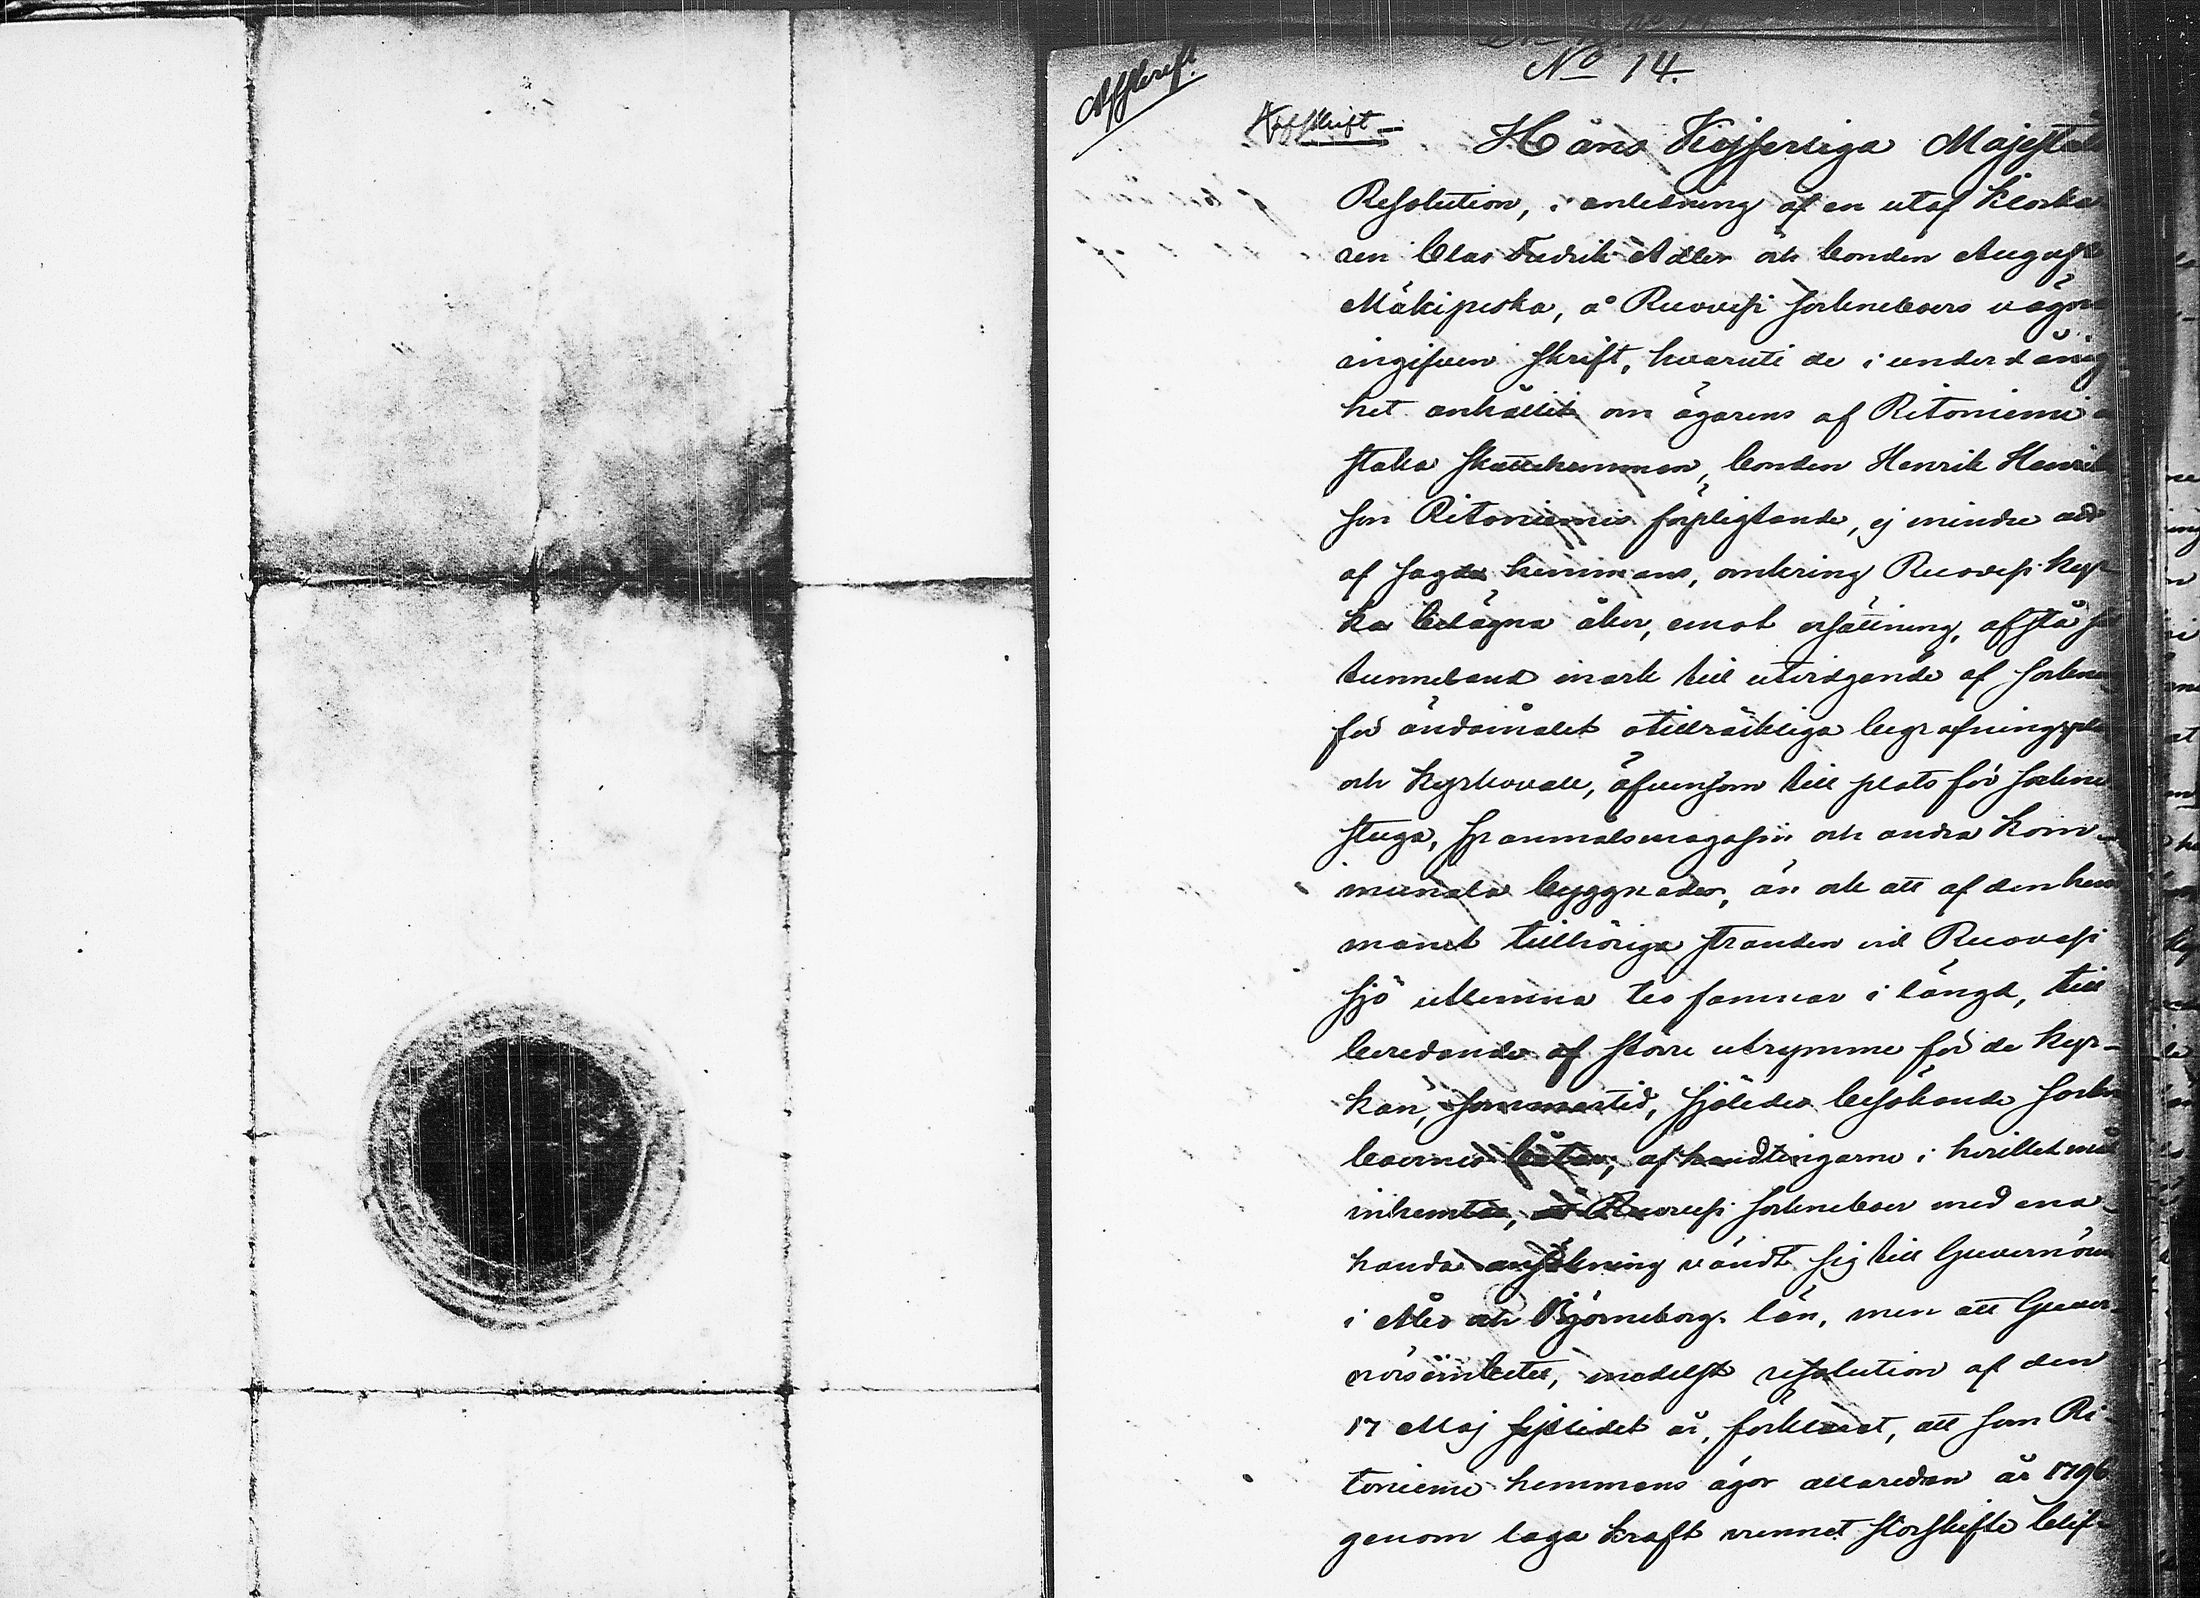 Afskrift.
No 14.
Afskrift
Hans Kejserliga Majestäts
Resolution, i anledning af en utaf klocka
ren Clas Fredrik Adler och bonden August
Mäkipeska, å Ruovesi sockneboers vägnar
ingifven skrift, hvaruti de i underdånig
het anhållit om ägarens af Ritoniemi
skattehemman, bonden Henrik Henrik
son Ritoniemis förpligtande, ej mindre att
af sagda hemmans, omkring Ruovesi kyr-
ka belägna åker, emot ersättning, afstå
tunneland mark till utvidgande af socknens
för ändamålet otillräckliga begrafningsplats
och kyrkovall, äfvensom till plats för sockne
stuga, spanmålsmagasin och andra kom-
munala byggnader, än ock att af den hem
manet tillhöriga stranden vid Ruovesi
sjö utlemna tio famnar i längd, till
beredande af större utrymme för de kyr-
kan, sommartid, sjöledes besökande sockne
boernes båtar; af handlingarne i hvilket mål
inhemtas, att Ruovesi sockneboer med ena-
handa ansökning vändt sig till Guvernören
i Åbo och Björneborgs län, men att Guver-
nörsembetet, medelst resolution af den
17 Maj sistlidet år, förklarat, att som Ri-
toniemi hemmans ägor allaredan år 1796
genom laga kraft vunnet storskifte blif-